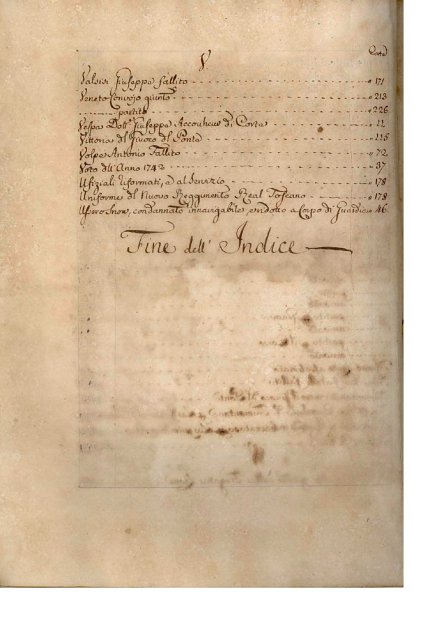 V
Carte
Valsisi Giuseppe fallito 171
Veneto Consejo quinto 213
partito 226
Vespa Dott. Giuseppe Accoucheur di Corte 12
Vittoria del Giuoco del Ponte 115
Volpe Antonio Fallito 72
Voto dell'Anno 1742 37
Ufiziali riformati, e al Servizio 178
Uniforme del Nuovo Reggimento Real Toscano 178
condannato in a Corpo di Guardia 46
Fine dell' Indice